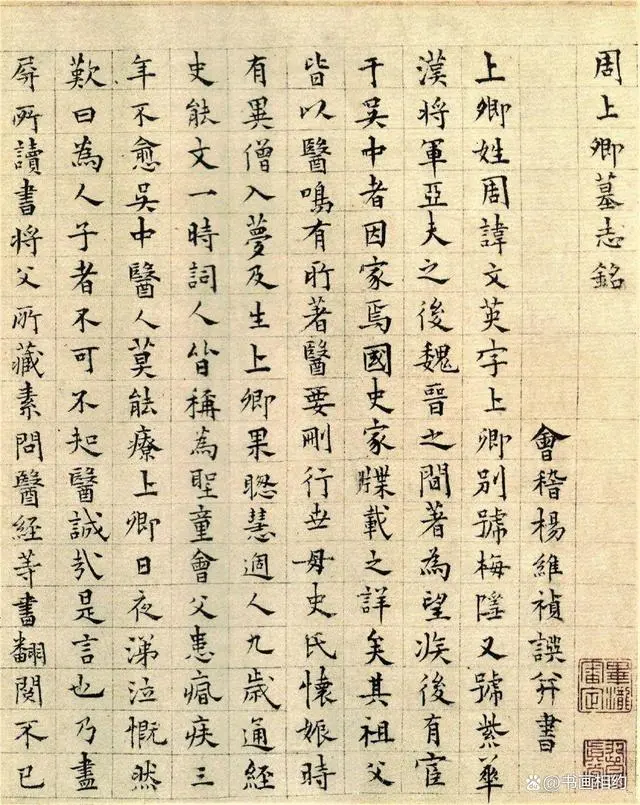 周上卿墓志銘
會稽楊維禎譔并書
上卿姓周諱文英字上卿別號梅隱又號紫華
漢將軍亞夫之後魏晉之間著為望族後有宦
于吳中者因家焉國史家牒載之詳矣其祖父
皆以醫鳴有所著醫要刪行世母史氏懷娠時
有異僧入夢及生上卿果聰慧過人九歲通經
史能文一時詞人皆稱為聖童會父患癘疾三
年不愈吳中醫人莫能療上卿日夜涕泣慨然
歎曰為人子者不可不知醫誠哉是言也乃盡
屏所讀書將父所藏素問醫經等書翻閱不已
書画相约